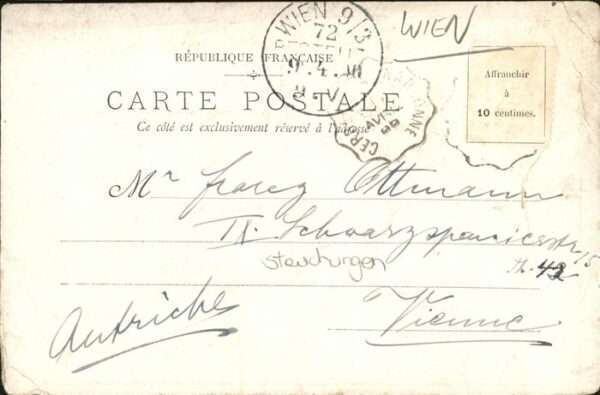 WIEN 9/3
72
9.4.
WIEN
RÉPUBLIQUE FRANÇAISE
CARTE POSTALE
Ce côté est exclusivement réservé à l'adresse
Affranchir
à
10 centimes.
Mr Ottmann
IX. Schwarzspanierstr 15
Steuchungen
Th. 42
Autriche
Vienne